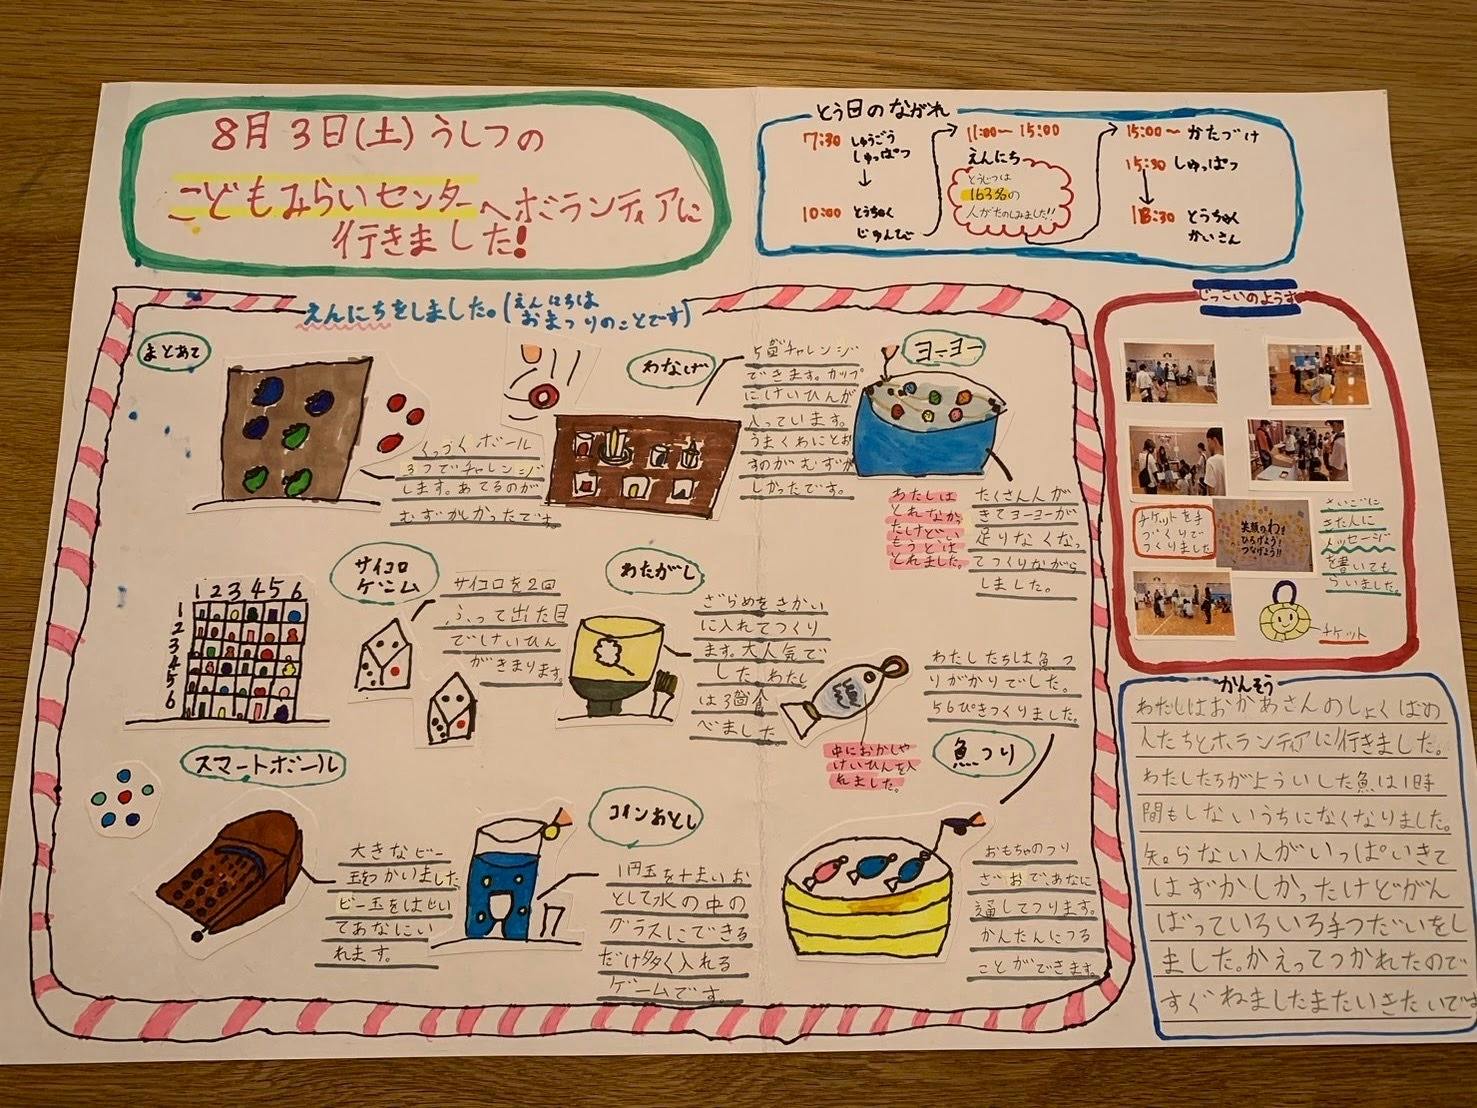 8月3日(土)うしつの
こどもみらいセンターへボランティアに
行きました!
とう日のながれ
7:30 しゅうごう
しゅっぱつ
10:00 とうちゃく
じゅんび
11:00〜15:00
えんにち
とうじつは
163名の
人がたのしみました!!
15:00〜 かたづけ
15:30 しゅっぱつ
18:30 とうちゃく
かいさん
えんにちをしました。(えんにちは
おまつりのことです)
まとあて
くっつくボール
3つでチャレンジ
します。あてるのが
むずかしかったです。
わなげ
5回チャレンジ
できます。カップ
にけいひんが
入っています。
うまくわにとお
すのがむずが
しかったです。
ヨーヨー
わたしは
とれなかっ
たけどい
もうとは
とれました。
たくさん人が
きてヨーヨーが
足りなくなっ
てつくりながら
しました。
1 2 3 4 5 6
1
2
3
4
5
6
サイコロ
ゲーム
サイコロを2回
ふって出た目
でけいひん
がきまります。
わたがし
ざらめをきかい
に入れてつくり
ます。大人気で
した。わたし
は3個食
べました
わたしたちは魚つ
りがかりでした。
56ぴきつくりました。
中におかしや
けいひんを入
れました。
魚つり
おもちゃのつり
ざおで、あなに
通してつります。
かんたんにつる
ことができます。
スマートボール
大きなビー
玉をつかいました。
ビー玉をはじい
てあなにい
れます。
コインおとし
1円玉を十まいお
として水の中の
グラスにできる
だけ多く入れる
ゲームです。
じっさいのようす
チケットを手
づくりで
つくりました
笑顔のわを
ひろげよう!
つなげよう!!
さいごに
きた人に
メッセージ
を書いても
らいました。
チケット
かんそう
わたしはおかあさんのしょくばの
人たちとボランティアに行きました。
わたしたちがよういした魚は1時
間もしないうちになくなりました。
知らない人がいっぱいきて
はずかしかったけどがん
ばっていろいろ手つだいをし
ました。かえってつかれたので
すぐねましたまたいきたいです